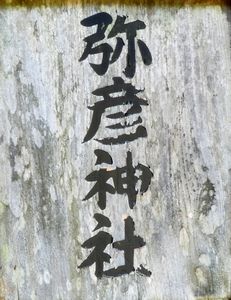 弥彦神社